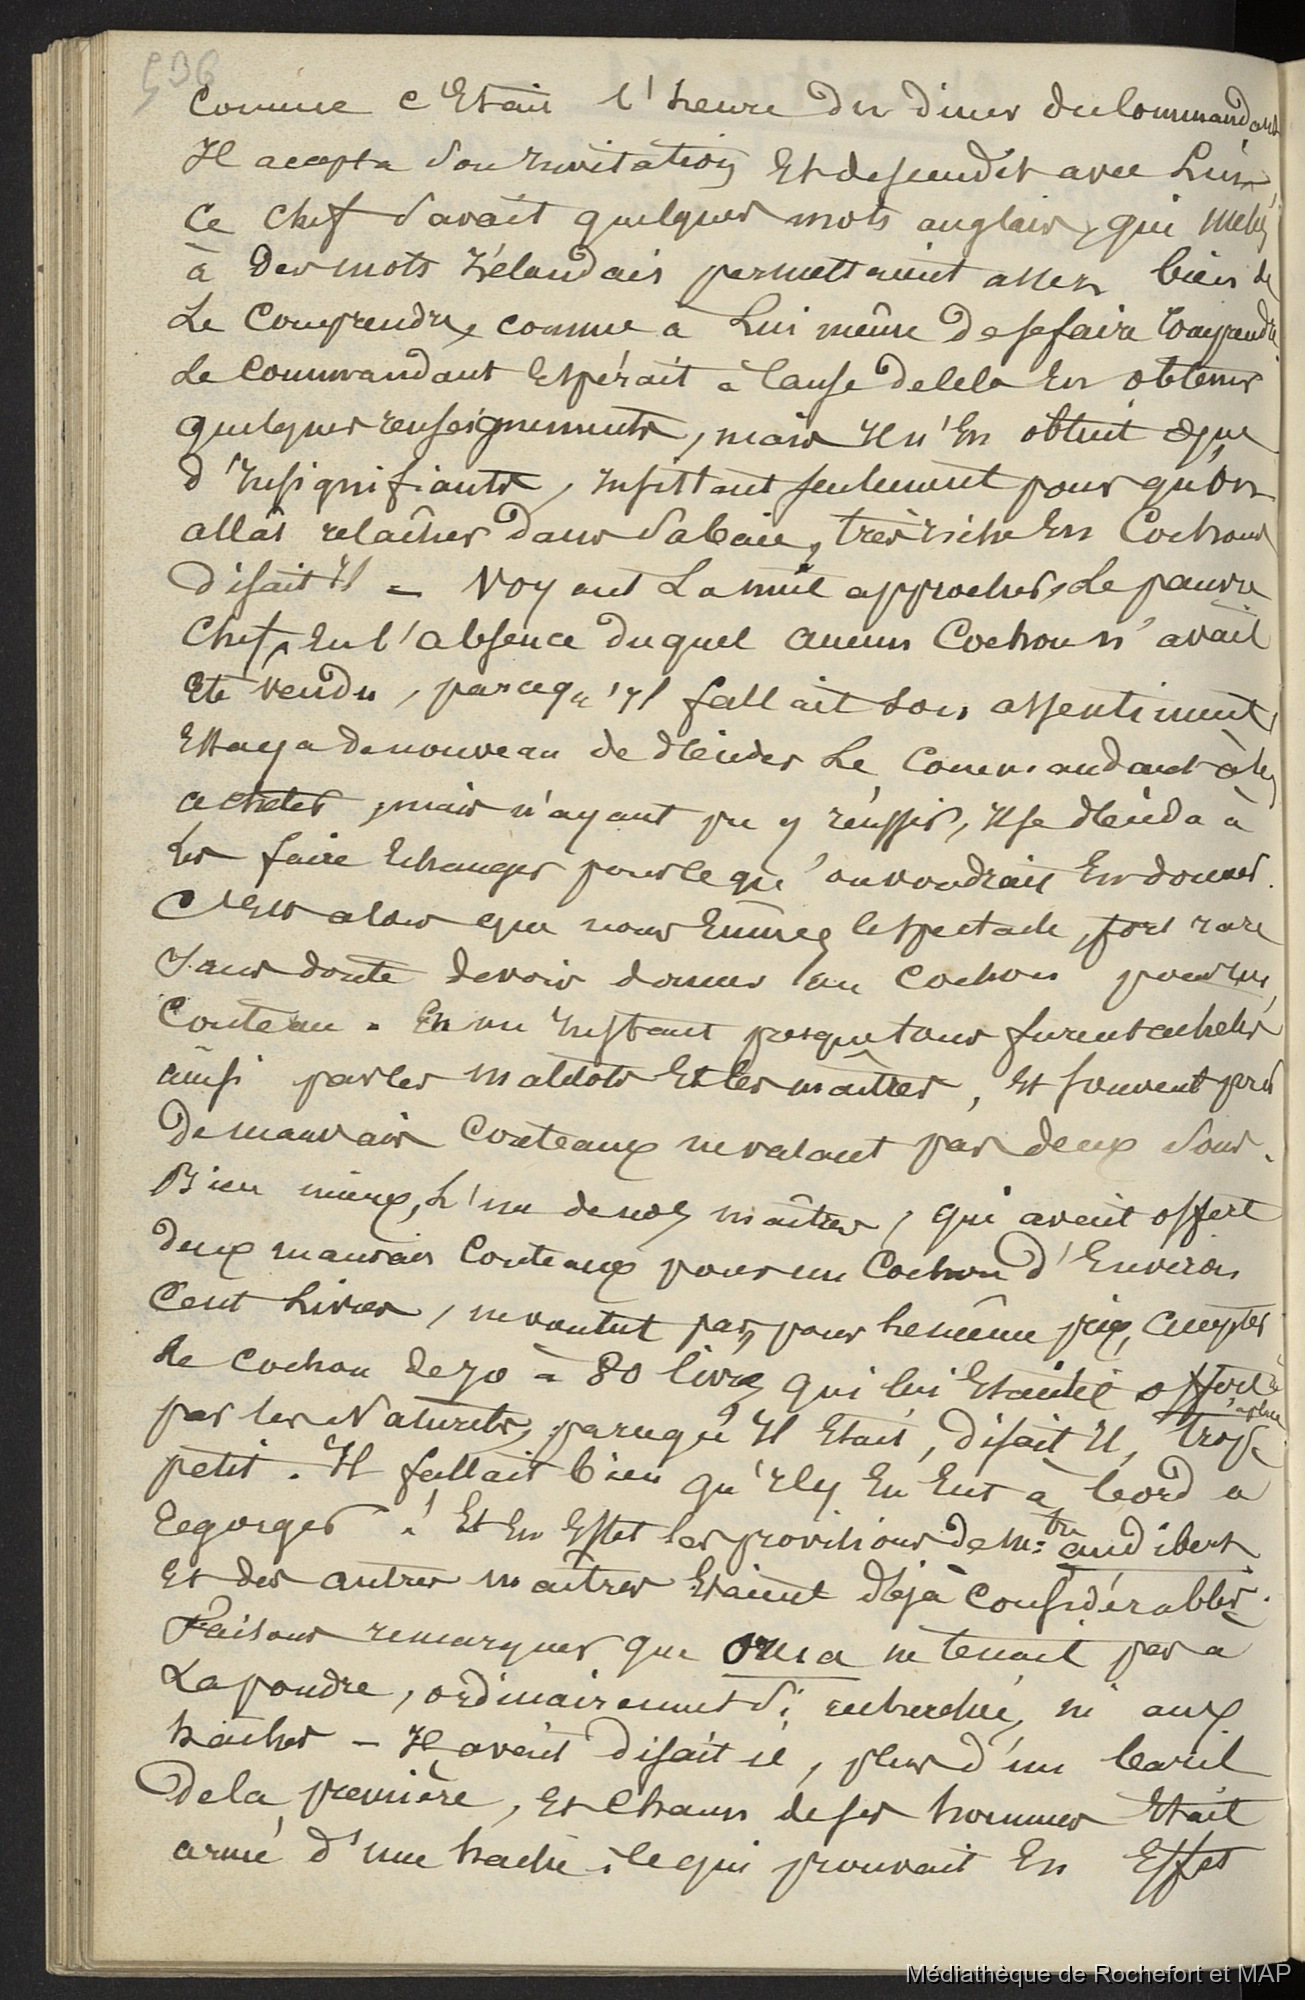 536
Comme c'Etait l'heure du diner du Commandant
Il accepta son Invitation Et descendit avec Lui,
Ce chef savait quelques mots anglais, qui mêlés
à des mots Zélandais permettaient assez bien de
Le Comprendre, comme à Lui même de se faire Comprendre.
Le Commandant Espérait à Cause de cela En obtenir
quelques renseignements, mais Il n'En obtint que
d'Insignifiants, Insistant seulement pour qu'on
allât relâcher dans sa baie, très riche En Cochons
disait Il = Voyant La nuit approcher, Le pauvre
Chef, En l'absence duquel aucun Cochon n'avait
Eté vendu, parcequ'Il fallait son assentiment,
Essaya de nouveau de décider Le Commandant à les
acheter, mais n'ayant pu y réussir, Il se décida à
Les faire Echanger pour ce qu'on voudrait En donner.
C'Est alors que nous Eûmes le spectacle, fort rare
Sans doute de voir donner un Cochon pour un
Couteau. En un Instant presque tous furent achetés
ainsi par les Matelots Et les maîtres, Et souvent pour
De mauvais Couteaux ne valant pas deux sous.
Bien mieux, L'un de nos maîtres, qui avait offert
deux mauvais Couteaux pour un Cochon d'Environ
Cent Livres, ne voulut pas, pour le même prix, accepter
Le cochon de 70 à 80 livres qui lui Etait offert à
la place
par les Naturels, parcequ'Il Etait, disait Il, trop
petit. Il fallait bien qu'Il y En Eut à bord à
regorger! Et En Effet les provisions de M:tre audibert
Et des autres maîtres Etaient déjà Considérables.
Faisons remarquer que Orua ne tenait pas à
La poudre, ordinairement si recherchée, ni aux
haches — Il avait disait il, plus d'un baril
De la première, Et Chacun de ses hommes Etait
armé d'une hache, ce qui prouvait En Effet
Médiathèque de Rochefort et MAP